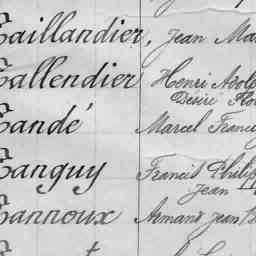 Taillandier, Jean Ma
Tallendier Henri Adol
Désiré Flo
Tandé Marcel Franç
Tanguy Francis Philipp
Jean
Tannoux Armand Jean B